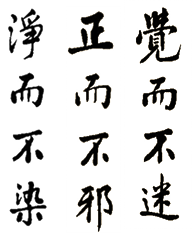 覺而不迷
正而不邪
淨而不染